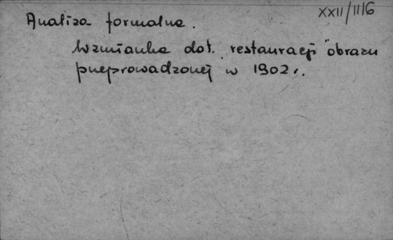 XXII/1116
Analiza formalna.
Wzmianka dot. restauracji obrazu
przeprowadzonej w 1902 r.